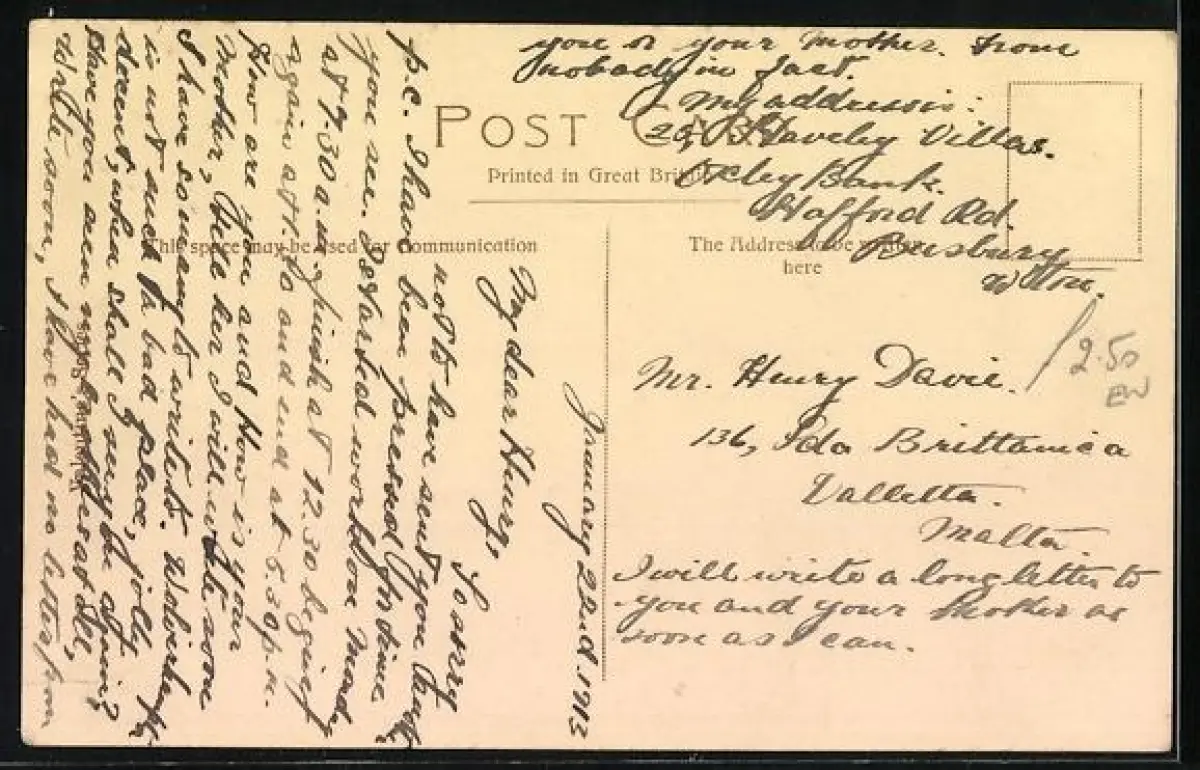 POST CARD
Printed in Great Britain
This space may be used for Communication
The Address to be written
here
January 22nd. 1913
My dear Henry,
So sorry
not to have sent you back
p.c. I have been pressed for time
you see. I started work on Mond.
at 9.30 a.m. finish at 12.30 begin
again at and end at 5.30 p.m.
How are you and How is your
Mother, tell her I will write soon
I have so many to write to. Wolverh
is not such a bad place, jolly
decent, when shall I be again?
Have you been at all,
Write soon, I have had no letter from
you or your Mother. From
nobody in fact.
My address is:
Villas.
Oxley Bank.
Stafford Rd.
Bushbury
W'ton.
Mr. Henry Davie.
136, Sda Brittanica
Valletta.
Malta.
I will write a long letter to
you and your Mother as
soon as I can.
2.50
EW